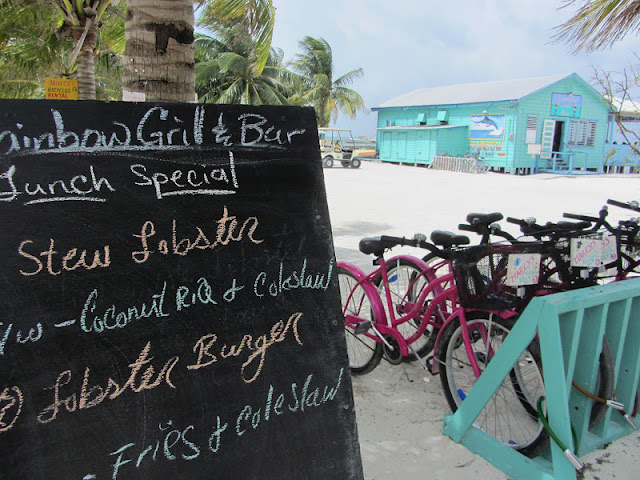 ainbow Grill & Bar
Lunch Special
Stew Lobster
w - Coconut RiQ & Coleslaw
Lobster Burger
- Fries & Coleslaw